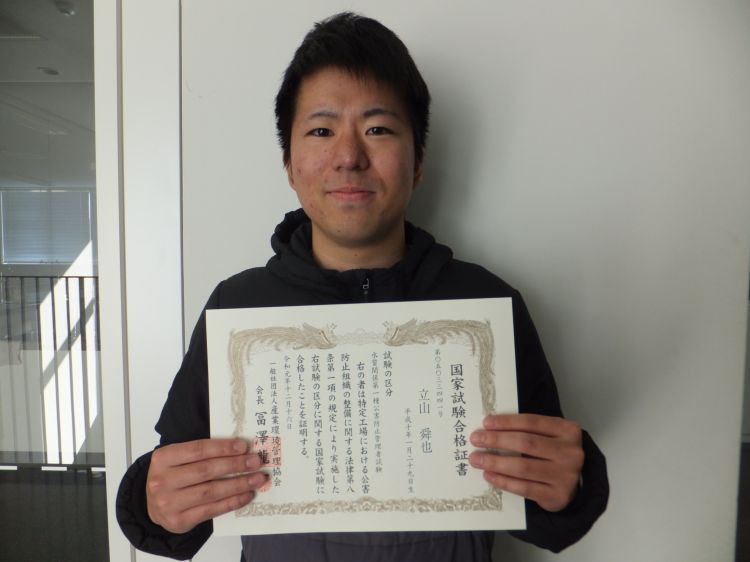 国家試験合格証書
第〇五〇三三四四一号
立山 舜也
平成十年一月二十九日生
試験の区分
水質関係第一種公害防止管理者試験
右の者は特定工場における公害
防止組織の整備に関する法律第八
条第一項の規定により実施した
右試験の区分に関する国家試験に
合格したことを証明する。
令和元年十二月十六日
一般社団法人産業環境管理協会
会長 冨澤龍